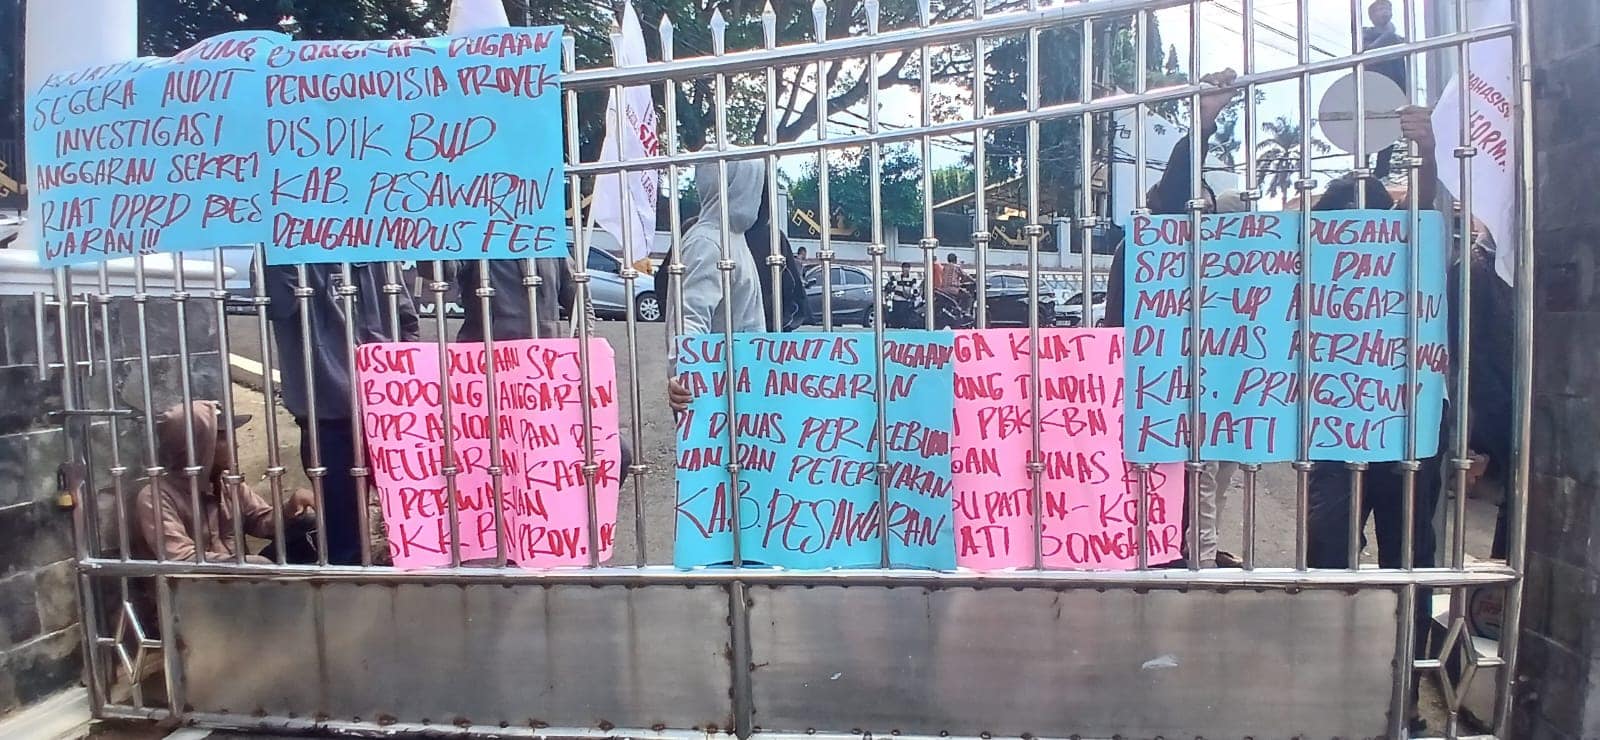 SEGERA AUDIT
INVESTIGASI
ANGGARAN SEKRET
RIAT DPRD PES
WARAN!!!
BONGKAR DUGAAN
PENGONDISIA PROYEK
DISDIK BUD
KAB. PESAWARAN
DENGAN MODUS FEE
USUT DUGAAN SPJ
BODONG ANGGARAN
OPRASIONAL DAN PE-
MELIHARAN KATOR
DI PERWAKILAN
BKKBN PROV.
SUT TUNTAS DUGAAN
ANGGARAN
DI DINAS PERKEBUN
NAN DAN PETERNAKAN
KAB. PESAWARAN
GA KUAT A
ONG TUNDIH
PBKKBN
GAN DINAS KB
UPATEN-KOTA
ATI BONGKAR
BONGKAR DUGAAN
SPJ BODONG DAN
MARK-UP ANGGARAN
DI DINAS PERHUBUNGAN
KAB. PRINGSEWU
KAJATI USUT